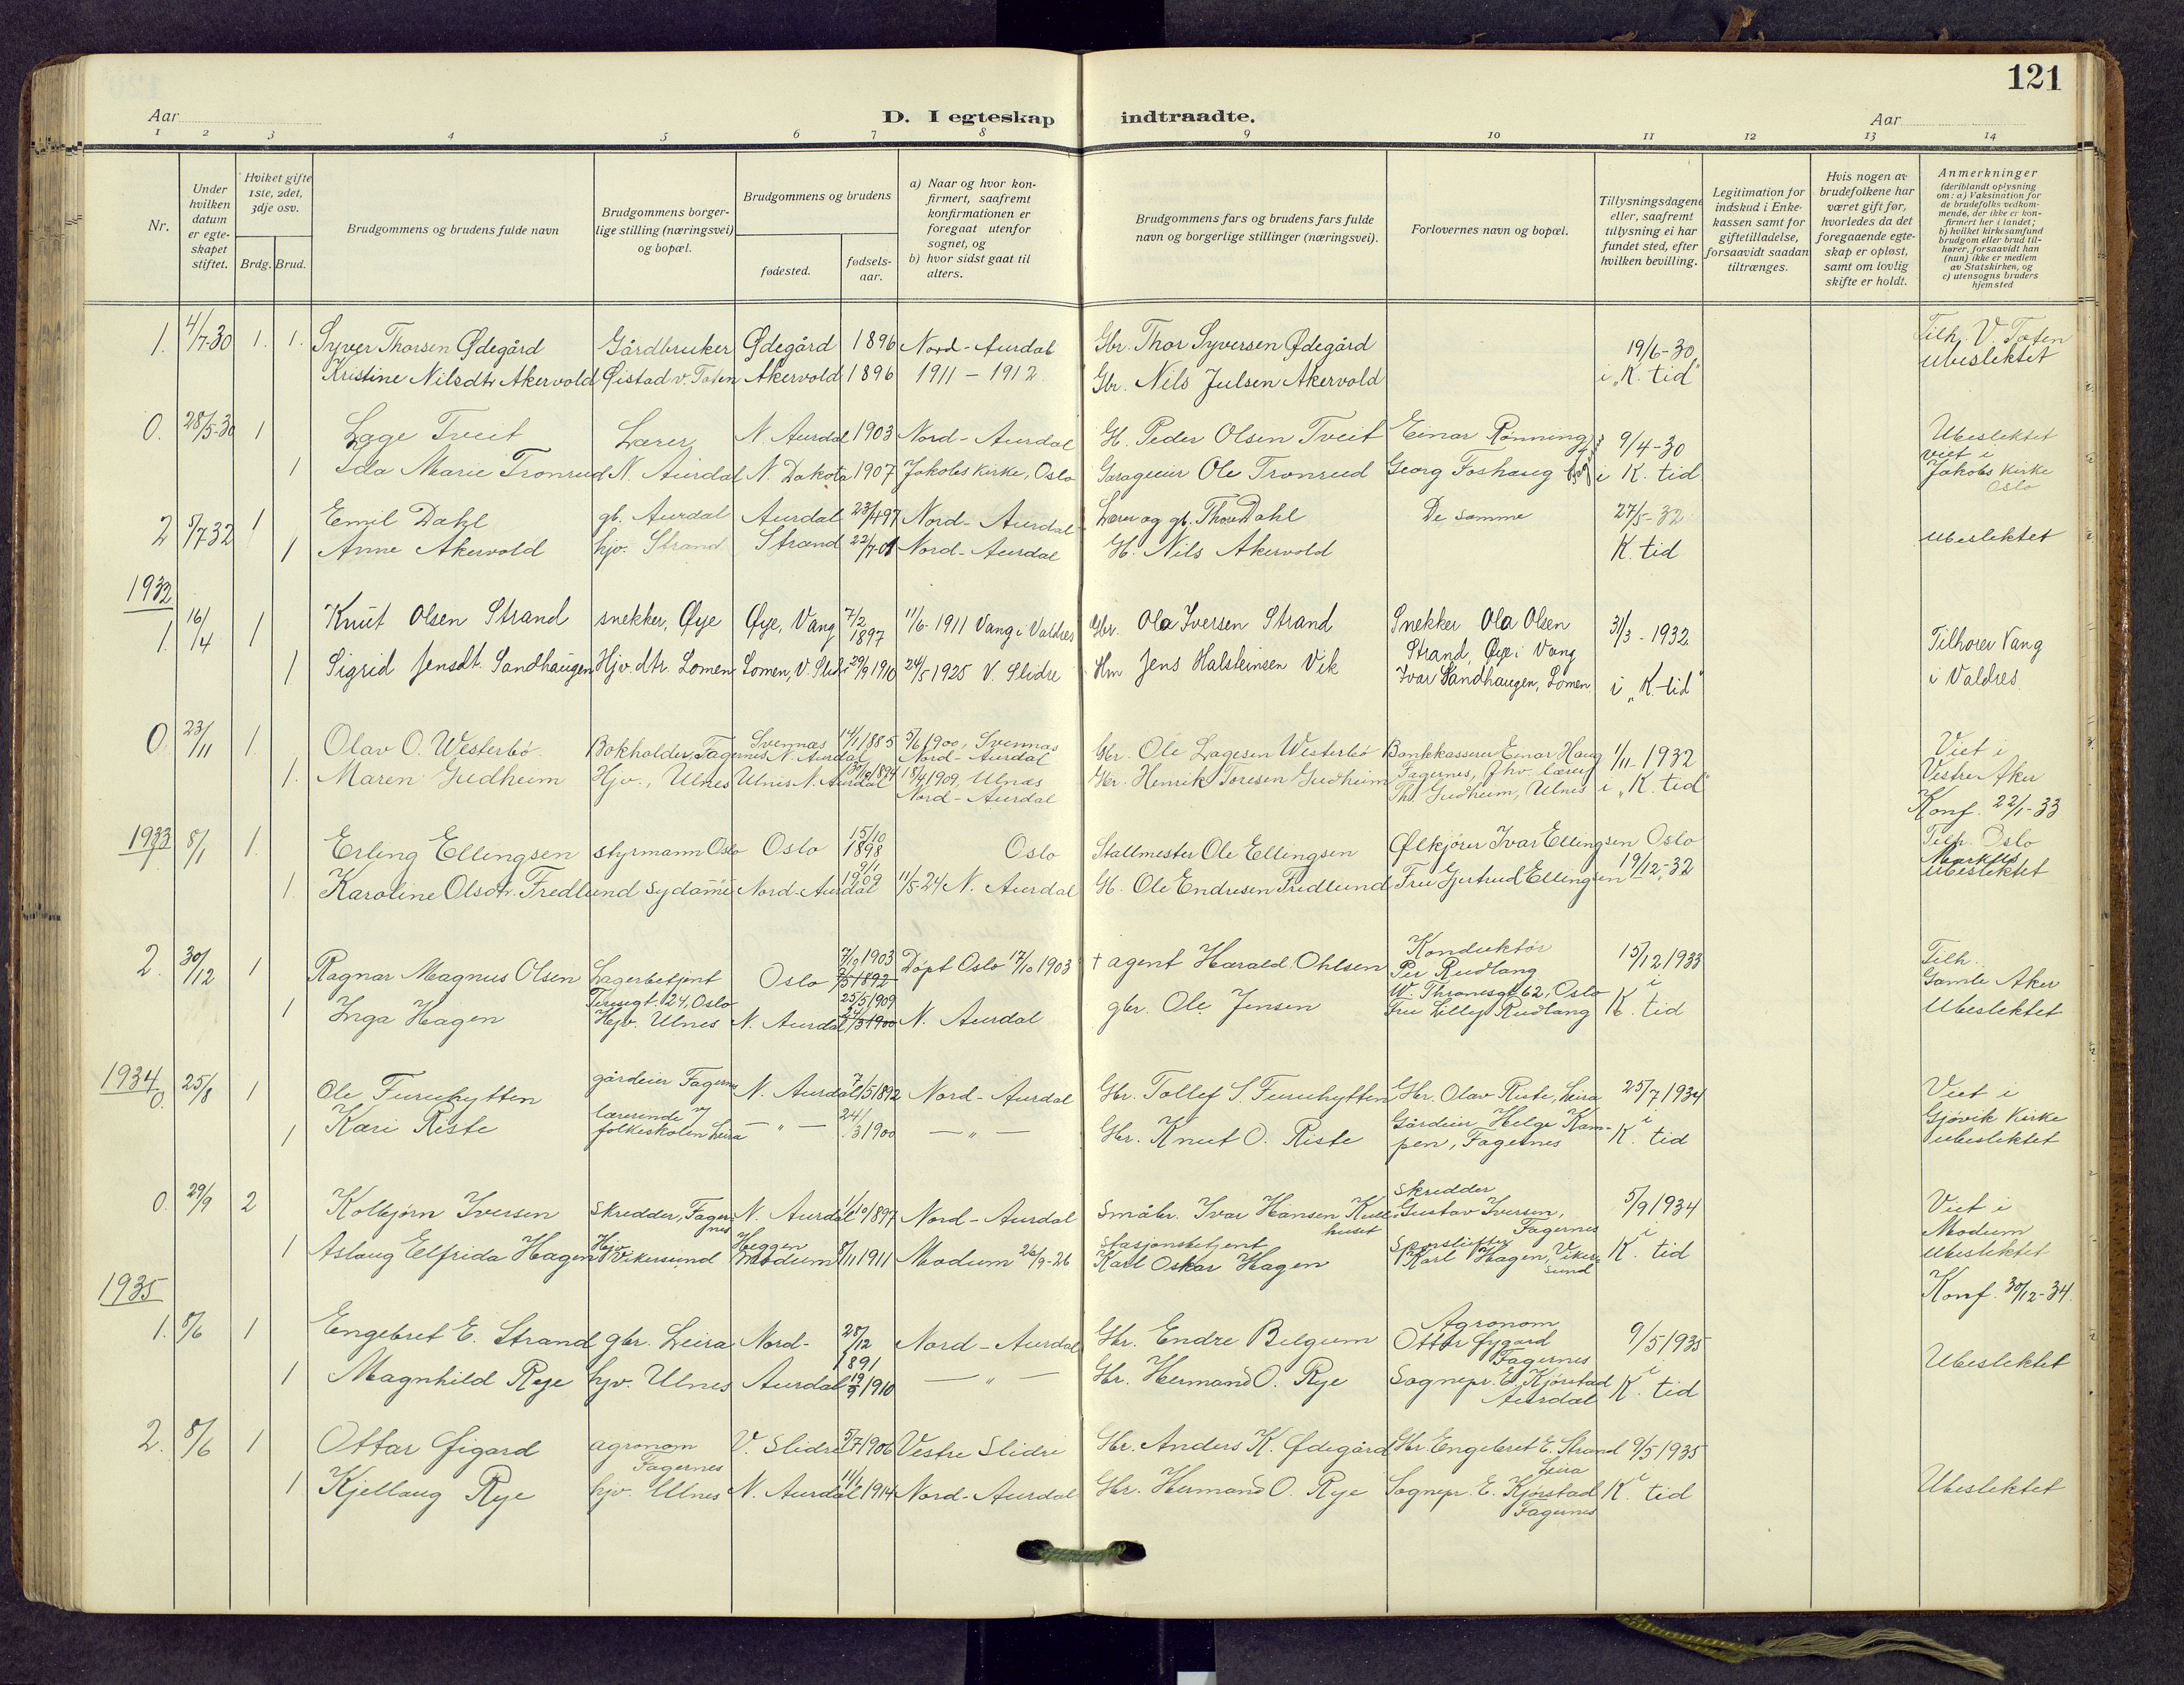 121
Aar D. I egteskap indtraadte. Aar
1 2 3 4 5 6 7 8 9 10 11 12 13 14
Nr.
Under hvilken datum er egte-skapet stiftet.
Hvilket gifte 1ste, 2det, 3dje osv.
Brdg. Brud.
Brudgommens og brudens fulde navn
Brudgommens borger-lige stilling (næringsvei) og bopæl.
Brudgommens og brudens
fødested.
fødsels-aar.
a) Naar og hvor kon-firmert, saafremt konfirmationen er foregaat utenfor sognet, og
b) hvor sidst gaat til alters.
Brudgommens fars og brudens fars fulde navn og borgerlige stillinger (næringsvei).
Forlovernes navn og bopæl.
Tillysningsdagene eller, saafremt tillysning ei har fundet sted, efter hvilken bevilling.
Legitimation for indskud i Enke-kassen samt for giftetilladelse, forsaavidt saadan tiltrænges.
Hvis nogen av brudefolkene har været gift før, hvorledes da det foregaaende egte-skap er opløst, samt om lovlig skifte er holdt.
Anmerkninger (deriblandt oplysning om: a) Vaksination for de brudefolks vedkom-mende, der ikke er kon-firmert her i landet; b) hvilket kirkesamfund brudgom eller brud til-hører, forsaavidt han (hun) ikke er medlem av Statskirken, og c) utensogns bruders hjemsted
1. 4/7-30 1. 1. Syver Thorsen Ødegård Gårdbruker Ødegård 1896 Nord-Aurdal Gbr. Thor Syversen Ødegård 19/6-30 Tilh. V. Toten
Kristine Nilsdtr Akervold Øistad v. Toten Akervold 1896 1911 - 1912 Gbr. Nils Julsen Akervold i "K. tid" ubeslektet
0. 28/5-30 1 Lage Tveit Lærer N. Aurdal 1903 Nord-Aurdal G. Peder Olsen Tveit Einar Rønning 9/4-30 Ubeslektet
1 Ida Marie Tronrud N. Aurdal N. Dakota 1907 Jakobs Kirke, Oslo Garageeier Ole Tronrud Georg Foshaug i K. tid viet i Jakobs Kirke Oslo
2 5/7 32 1 Emil Dahl gb. Aurdal Aurdal 23/4 97 Nord-Aurdal Lærer og gb. Thore Dahl De samme 27/5-32 ubeslektet
1 Anne Akervold hjv. Strand Strand 22/7-01 Nord-Aurdal G. Nils Akervold K. tid
1932
1. 16/4 1 Knut Olsen Strand snekker, Øye Øye, Vang 7/2 1897 11/6-1911 Vang i Valdres Gbr. Ola Iversen Strand Snekker Ola Olsen Strand, Øye i Vang 31/3-1932 Tilhører Vang
1 Sigrid Jensdt. Sandhaugen Hjv. dtr. Lomen Lomen, V. Slidre 29/9 1910 24/5 1925 V. Slidre Hm Jens Halsteinsen Vik Ivar Sandhaugen, Lomen i "K. tid" i Valdres
0 23/11 1. Olav O. Westerbø Bokholder, Fagernes Svennes N. Aurdal 14/1 1885 5/6 1900, Svennes Nord-Aurdal Gbr. Ole Lagesen Westerbø Bankkasserer Einar Haug Fagernes, 1/11-1932 Viet i Vestre Aker
1. Maren Gudheim Hjv., Ulnes Ulnes N. Aurdal 1894 18/4 1909, Ulnes Nord-Aurdal Gbr. Henrik Toresen Gudheim Th. Gudheim, Ulnes i "K. tid" Konf. 22/1-33
1933 8/1 1. Erling Ellingsen styrmann Oslo Oslo 15/10 1898 Oslo Stallmester Ole Ellingsen Ølkjører Ivar Ellingsen Oslo Tilh. Oslo
1. Karoline Olsdtr. Fredlund sydame Nord-Aurdal 9/1 1909 11/5-24 N. Aurdal G. Ole Endresen Fredlund Fru Gjertrud Ellingsen 19/12-32 Markus ubeslektet
2. 30/12 1 Ragnar Magnus Olsen Lagerbetjent Oslo 7/10 1903 7/5 1892 Døpt Oslo 17/10 1903 † agent Harald Ohlsen Konduktør Per Rudlang W. Thranesgt 62, Oslo 15/12 1933 Tilh. Gamle Aker
1 Inga Hagen Teresgt. 24, Oslo Hjv. Ulnes N. Aurdal 25/5 1909 24/3 1900 N. Aurdal gbr. Ole Jensen Fru Lilly Rudlang i K. tid Ubeslektet
1934
0. 25/8 1 Ole Furuhytten gårdeier Fagernes N. Aurdal 7/5 1892 Nord-Aurdal Gbr. Tollef S. Furuhytten Gbr. Olav Riste, Leira 25/7 1934 Viet i Gjøvik Kirke
1 Kari Riste lærerinde v/ folkeskolen Leira — " — 24/3 1900 — " — Gbr. Knut O. Riste Gårdeier Helge Kam-pen, Fagernes i K. tid ubeslektet
0. 29/9 2 Kolbjørn Iversen Skredder, Fagernes N. Aurdal 1/10 1897 Nord-Aurdal Småbr. Ivar Hansen Kullhuset Skredder Gustav Iversen, Fagernes 5/9 1934 Viet i Modum
1 Aslaug Elfrida Hagen Hjv. Vikersund Heggen Modum 8/11 1911 Modum 26/9-26 Stasjonsbetjent Karl Oskar Hagen Karl Hagen, Vikersund i K. tid ubeslektet
1935 Konf. 30/12-34
1. 8/6 1 Engebret E. Strand gbr. Leira Nord- 28/12 1891 Nord-Aurdal Gbr. Endre Belgum Agronom Ottar Øygard Fagernes 9/5 1935 Ubeslektet
1 Magnhild Rye hjv. Ulnes Aurdal 19/9 1910 — " — Gbr. Hermand O. Rye Sognepr. E. Kjørstad Aurdal i K. tid
2. 8/6 1 Ottar Øigard agronom Fagernes V. Slidre 5/7 1906 Vestre Slidre Gbr. Anders K. Ødegård Gbr. Engebret E. Strand Leira 9/5 1935 Ubeslektet
1 Kjellaug Rye hjv. Ulnes N. Aurdal 11/1 1914 Nord-Aurdal Gbr. Hermand O. Rye Sognepr. E. Kjørstad Fagernes i K. tid